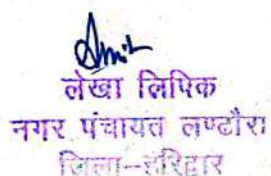 लेखा लिपिक
नगर पंचायत लण्ढौरा
जिला-हरिद्वार